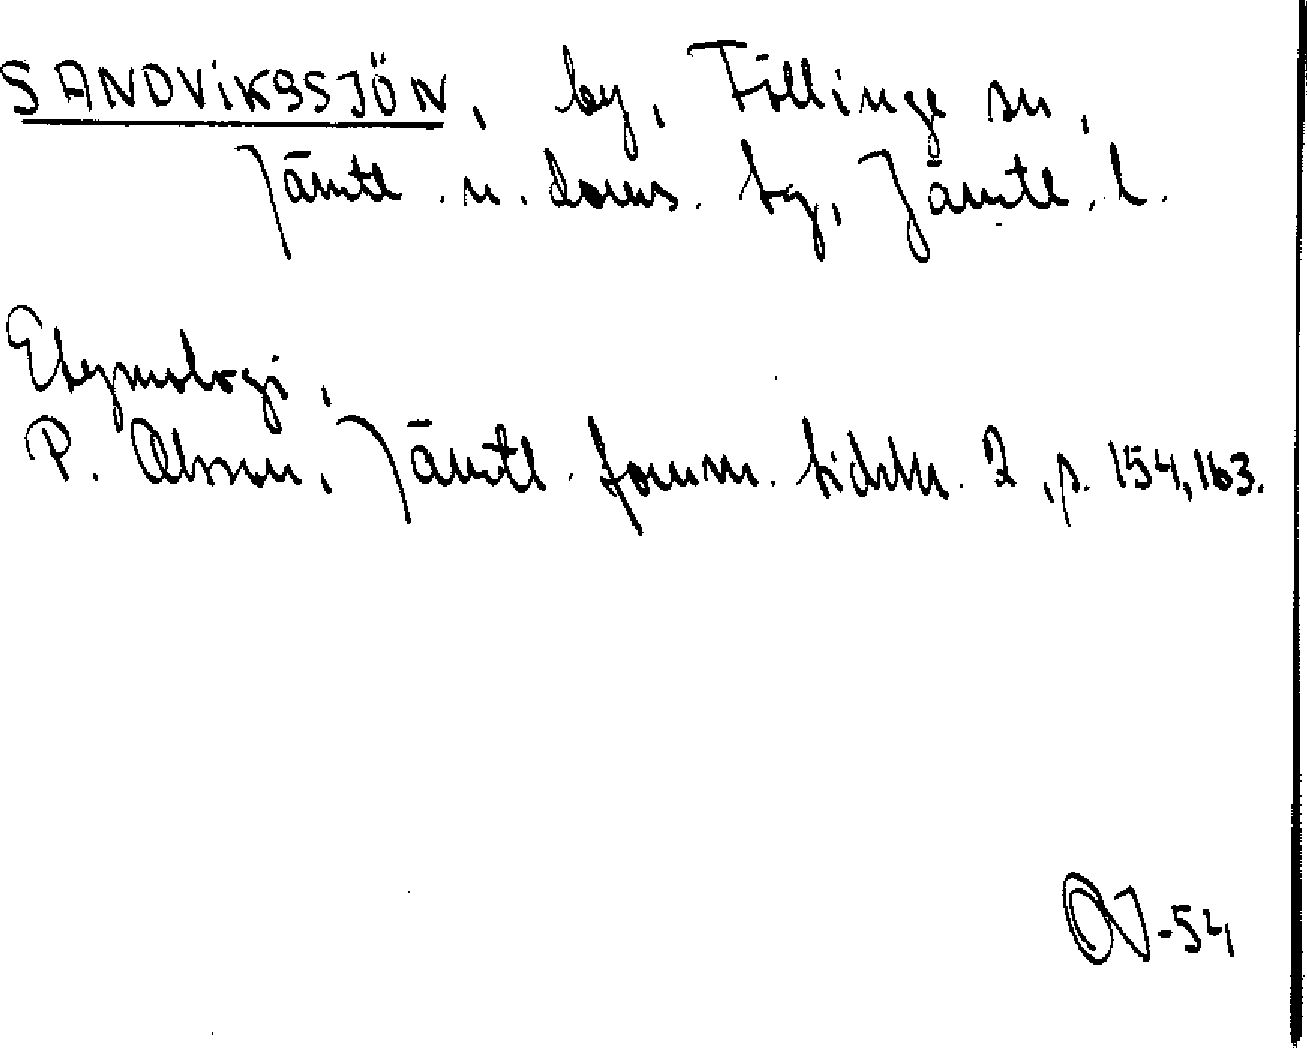 SANDVIKSSJÖN, by, Föllinge sn,
Jämtl. n. doms. by, Jämtl. l.
Etymologi,
P. Olsson, Jämtl. fornm. tidskr. 2, p. 154, 163.
OJ-54